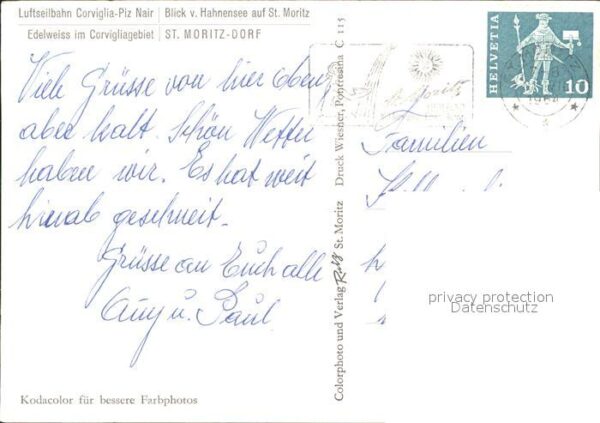 Luftseilbahn Corviglia-Piz Nair | Blick v. Hahnensee auf St. Moritz
Edelweiss im Corvigliagebiet | ST. MORITZ-DORF
Viele Grüsse von hier oben,
aber kalt. Schön Wetter
haben wir. Es hat weit
hinab geschneit.
Grüsse an Euch alle
u. Paul
Kodacolor für bessere Farbphotos
Colorphoto und Verlag Rutz St. Moritz Druck Wiesner, Pontresina C 115
St. Moritz
HELVETIA
10
Familien
privacy protection
Datenschutz